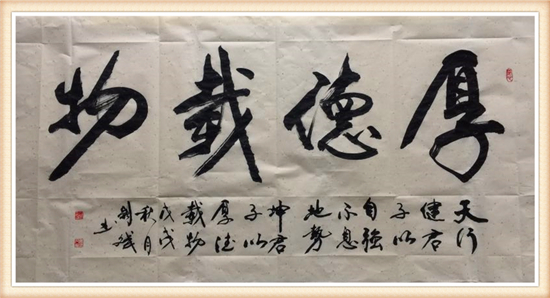 厚德載物
天行
健君
子以
自強
不息
地勢
坤君
子以
厚德
載物
戊戌
秋月